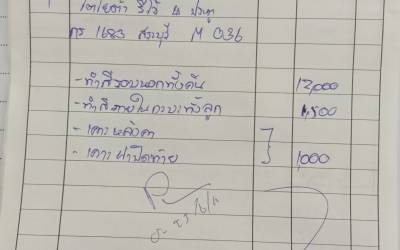 โตโยต้า รีโว่ 4 ประตู
กร 1683 สระบุรี M 036
- ทำสีรอบนอกทั้งคัน 12,000
- ทำสีภายในกระบะทั้งลูก 4,500
- เคาะหลังคา
- เคาะฝาปิดท้าย 1,000